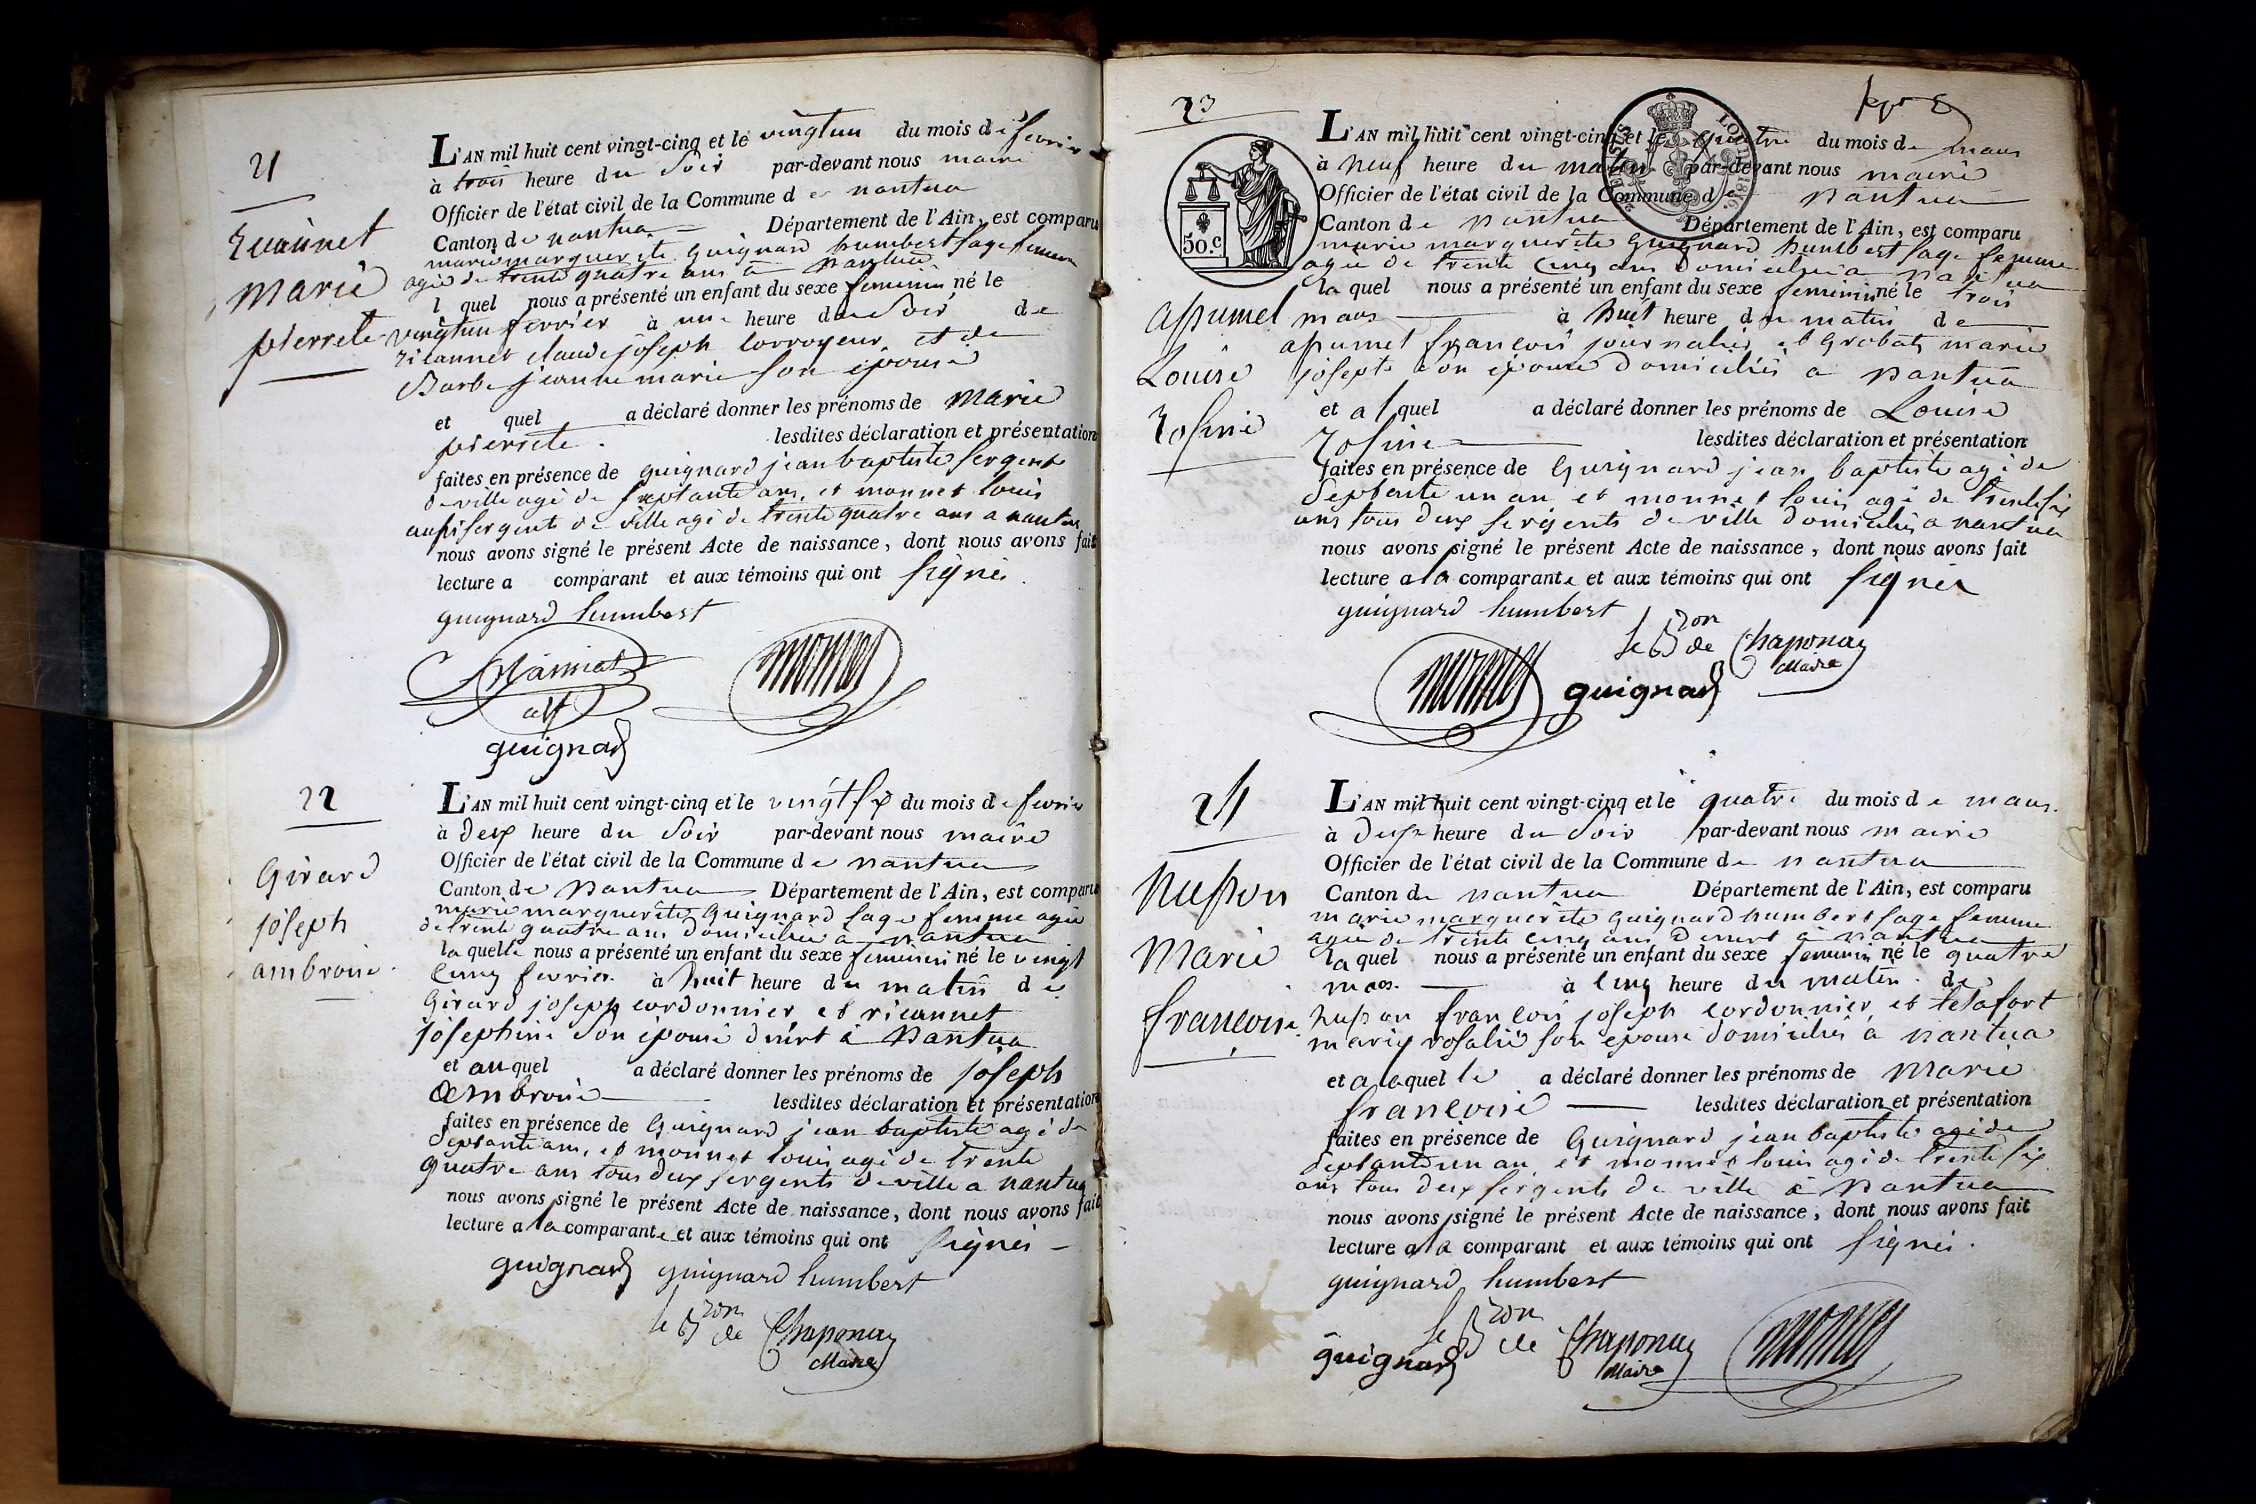 21
Marie
pierrete
L'AN mil huit cent vingt-cinq et le vingtun du mois de fevrier
à trois heure du Soir par-devant nous maire
Officier de l'état civil de la Commune de nantua
Canton de nantua Département de l'Ain, est comparu
marie marguerite Guignard humbert sage femme
agée de trente quatre ans à nantua
l quel nous a présenté un enfant du sexe feminin né le
vingtun fevrier à une heure du Soir de
claude joseph corroyeur et de
Barbe jeanne marie son epouse
et quel a déclaré donner les prénoms de Marie
pierrete. lesdites déclaration et présentation
faites en présence de guignard jean baptiste sergent
de ville agé de septante ans, et monnet louis
aussi sergent de ville agé de trente quatre ans a nantua
nous avons signé le présent Acte de naissance, dont nous avons fait
lecture a comparant et aux témoins qui ont signés.
guignard humbert
monnet
guignard
22
Girard
joseph
ambroise
L'AN mil huit cent vingt-cinq et le vingt six du mois de fevrier
à deux heure du Soir par-devant nous maire
Officier de l'état civil de la Commune de nantua
Canton de Nantua Département de l'Ain, est comparu
marie marguerite Guignard sage femme agée
de trente quatre ans domiciliée à nantua
la quelle nous a présenté un enfant du sexe feminin né le vingt
cinq fevrier à huit heure du matin de
Girard joseph cordonnier et ricannet
josephine son epouse demrt à Nantua
et au quel a déclaré donner les prénoms de joseph
Ambroise lesdites déclaration et présentation
faites en présence de Guignard jean baptiste agé de
septante ans, et monnet louis agé de trente
quatre ans tous deux sergents de ville a nantua
nous avons signé le présent Acte de naissance, dont nous avons fait
lecture a la comparante et aux témoins qui ont signés
guignard guignard humbert
le Bon de Chaponay
Maire
23
50.c
L'AN mil huit cent vingt-cinq et le quatre du mois de mars
à neuf heure du matin par-devant nous maire
Officier de l'état civil de la Commune de Nantua
Canton de Nantua Département de l'Ain, est comparu
marie marguerite Guignard humbert sage femme
agée de trente cinq ans domiciliée a Nantua
la quel nous a présenté un enfant du sexe feminin né le trois
mars à huit heure du matin de
apumel françois journalier et Grobat marie
josepte son epouse domiciliés a Nantua
apumel
Louise
rosine
et a l quel a déclaré donner les prénoms de Louise
rosine lesdites déclaration et présentation
faites en présence de Guignard jean baptiste agé de
septante un an et monnet louis agé de trente six
ans tous deux sergents de ville domiciliés a nantua
nous avons signé le présent Acte de naissance, dont nous avons fait
lecture a la comparante et aux témoins qui ont signés
guignard humbert
le Bon de Chaponay
Maire
monnet guignard
24
Marie
françoise
L'AN mil huit cent vingt-cinq et le quatre du mois de mars.
à deux heure du Soir par-devant nous maire
Officier de l'état civil de la Commune de nantua
Canton de nantua Département de l'Ain, est comparu
marie marguerite Guignard humbert sage femme
agée de trente cinq ans demrt à nantua
la quel nous a présenté un enfant du sexe feminin né le quatre
mars. à cinq heure du matin. de
françois joseph cordonnier et
marie rosalie son epouse domiciliés a nantua
et a laquel le a déclaré donner les prénoms de Marie
françoise lesdites déclaration et présentation
faites en présence de Guignard jean baptiste agé de
septante un an et monnet louis agé de trente six
ans tous deux sergents de ville à Nantua
nous avons signé le présent Acte de naissance, dont nous avons fait
lecture a la comparant et aux témoins qui ont signés.
guignard humbert
le Bon de Chaponay
Maire
guignard monnet